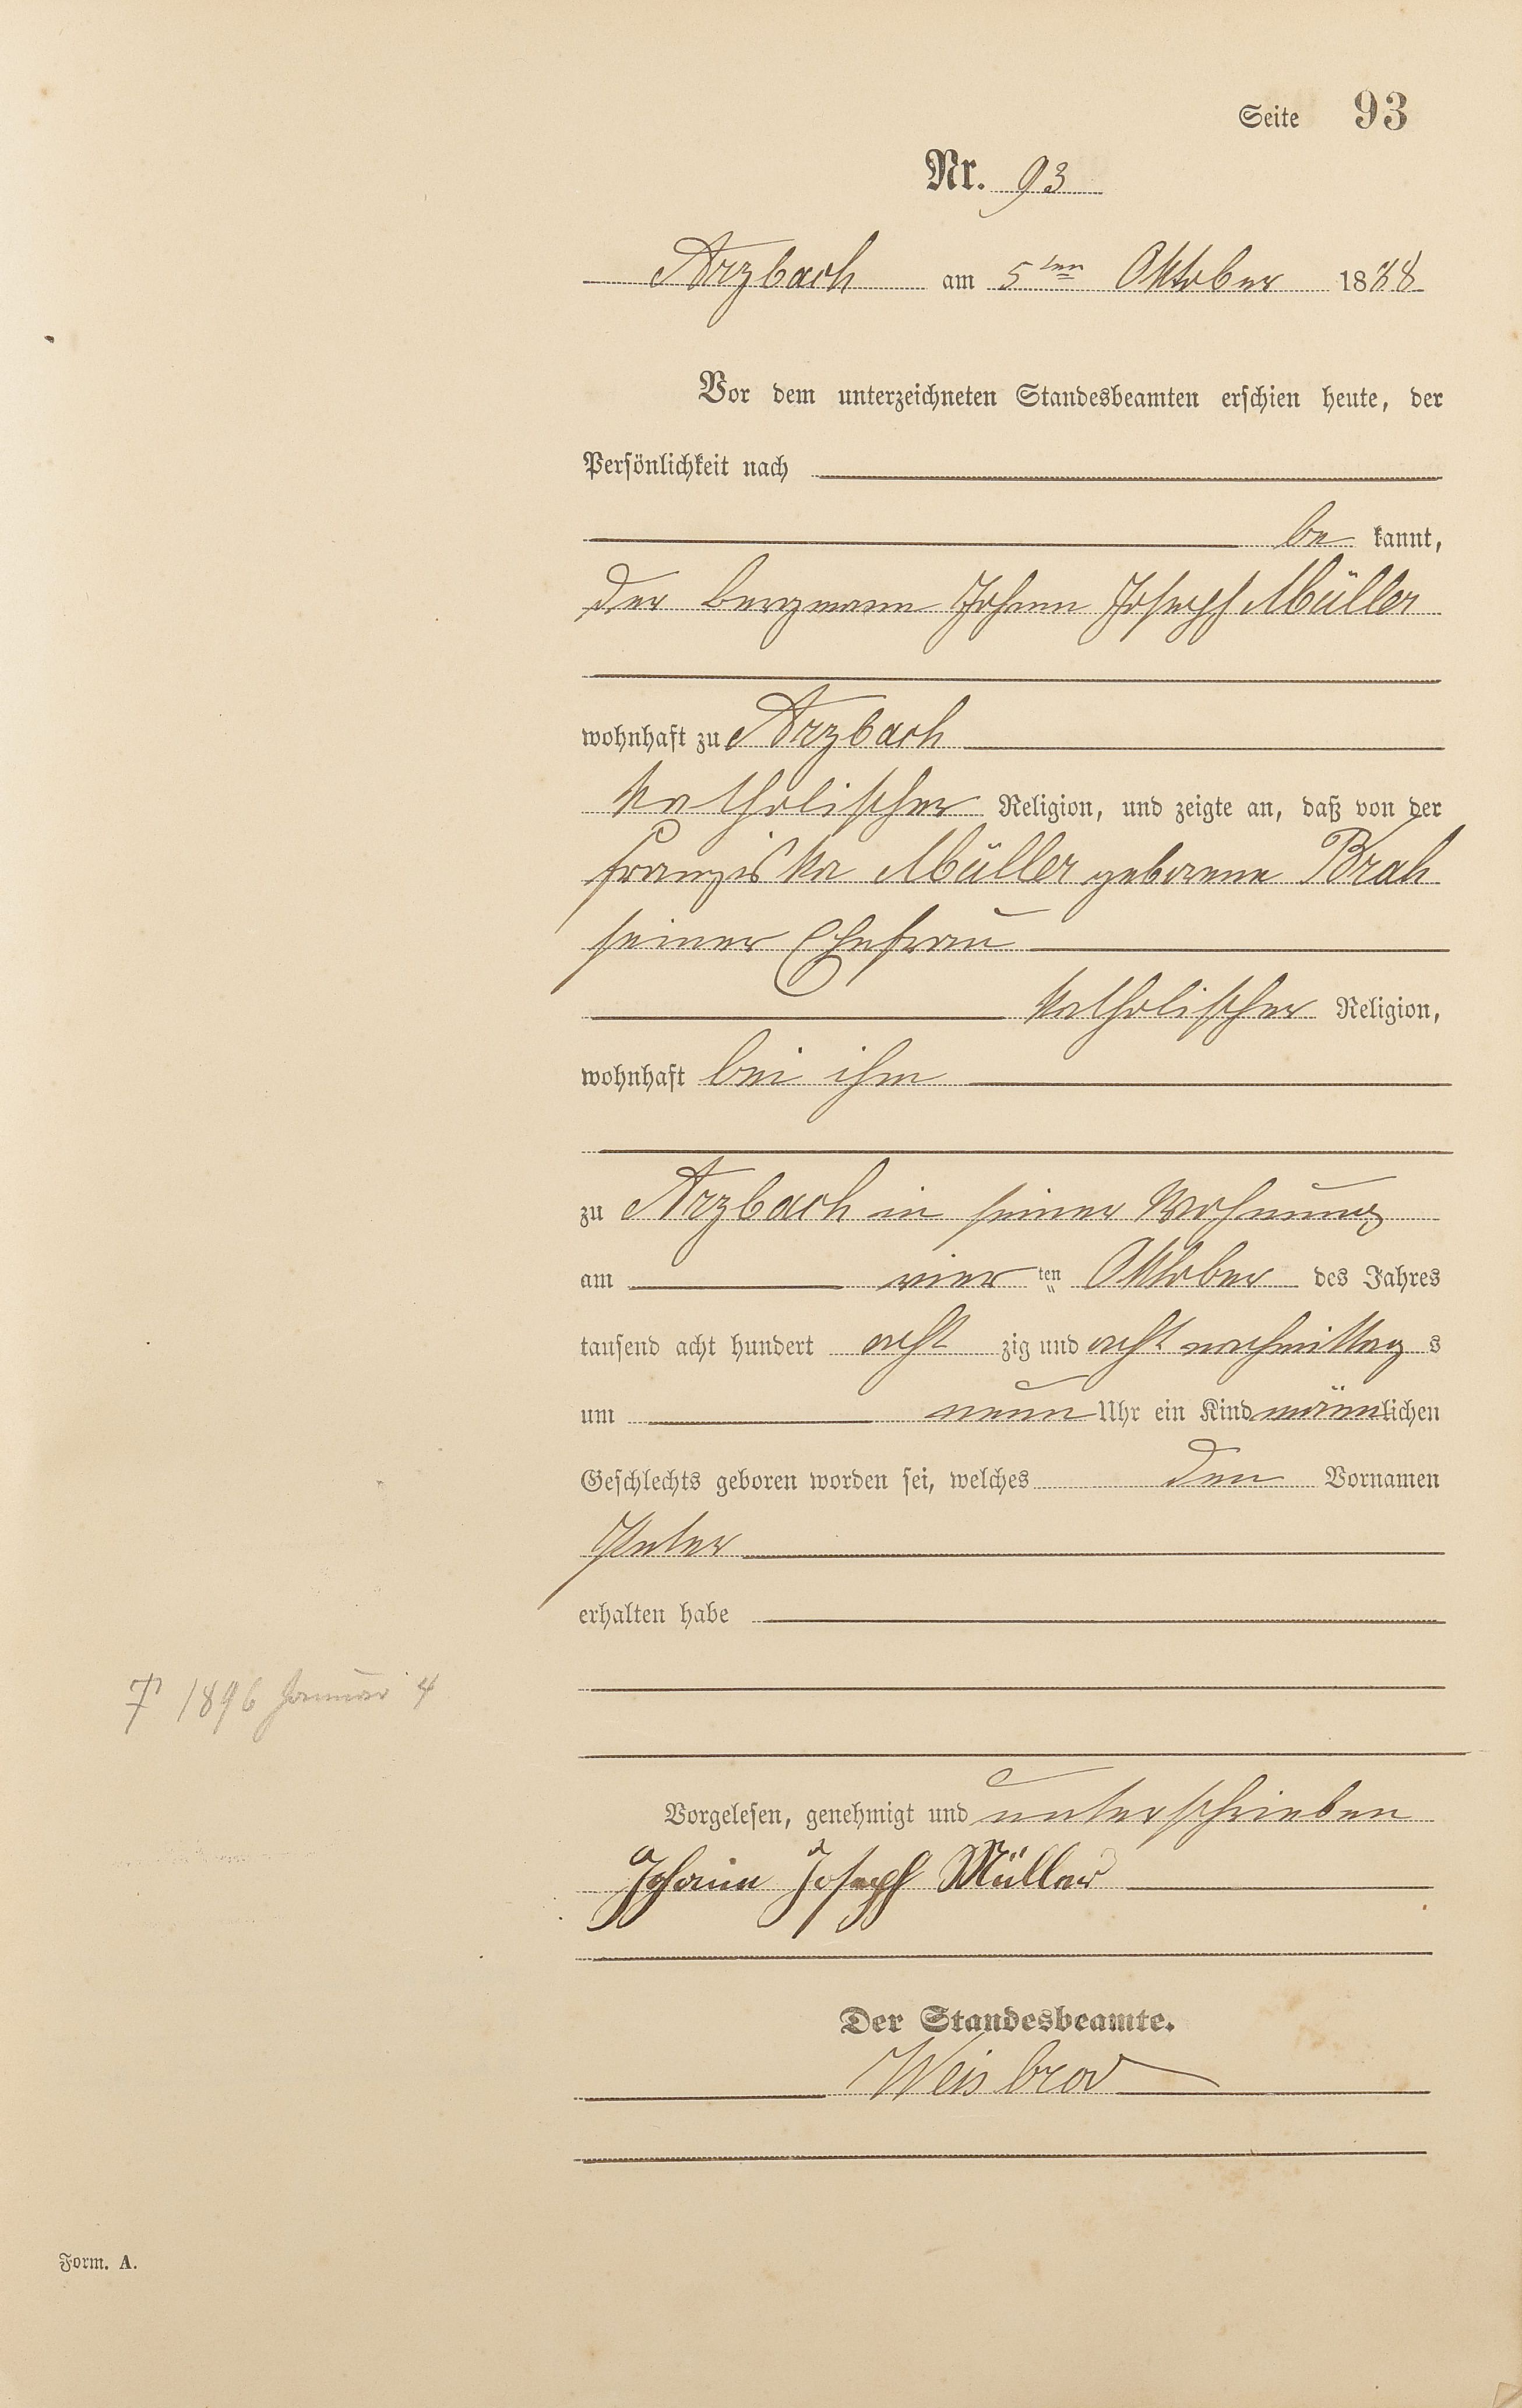 Seite 93
Nr. 93
Arzbach am 5ten Oktober 1888
Vor dem unterzeichneten Standesbeamten erschien heute, der
Persönlichkeit nach
be kannt,
der Bergmann Johann Joseph Müller
wohnhaft zu Arzbach
katholischer Religion, und zeigte an, daß von der
Franziska Müller geborene Brah
seiner Ehefrau
katholischer Religion,
wohnhaft bei ihm
zu Arzbach in seiner Wohnung
am vier ten Oktober des Jahres
tausend acht hundert acht zig und acht nachmittag s
um neun Uhr ein Kind männlichen
Geschlechts geboren worden sei, welches den Vornamen
Peter
erhalten habe
† 1896 Januar 4
Vorgelesen, genehmigt und unterschrieben
Johann Joseph Müller
Der Standesbeamte.
Weisbrod
Form. A.